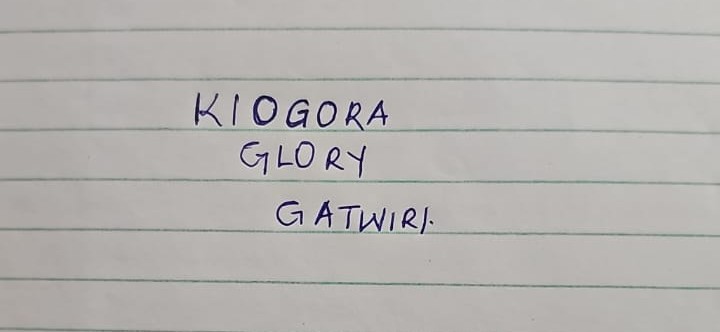 KIOGORA
GLORY
GATWIRI.